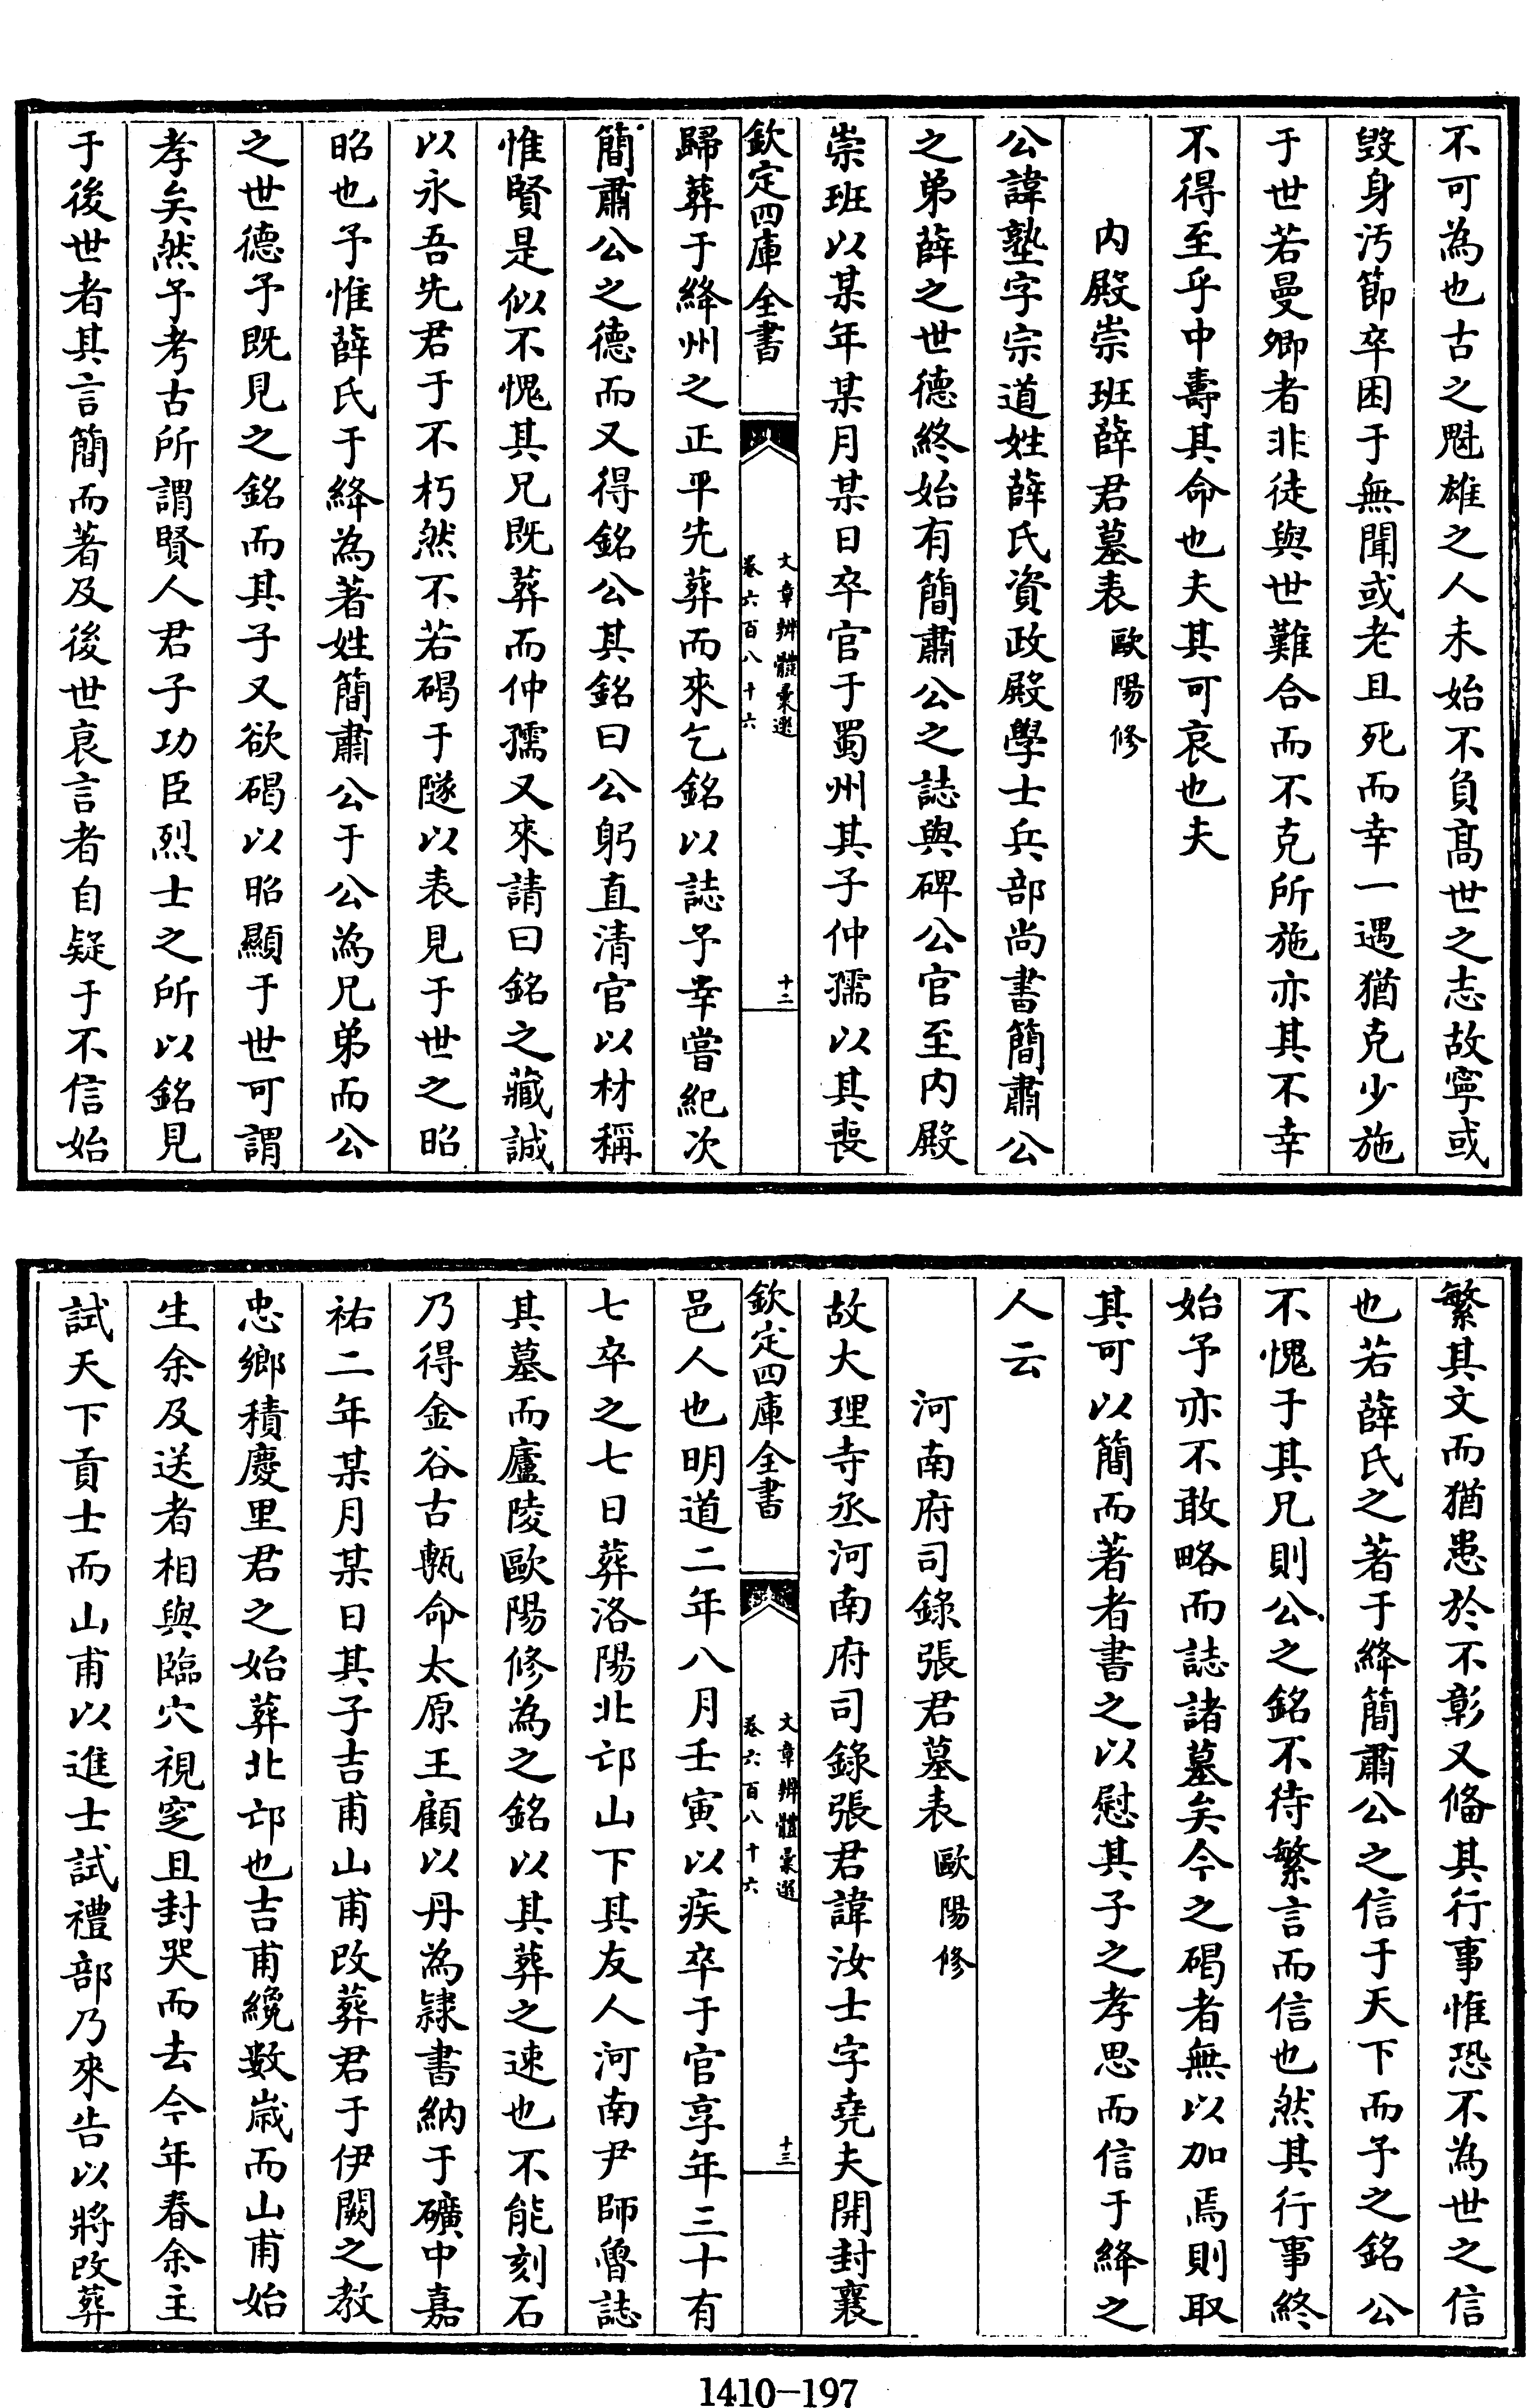 不可為也古之魁雄之人未始不負髙世之志故寧或
毀身汚節卒困于無聞或老且死而幸一遇猶克少施
于世若曼卿者非徒與世難合而不克所施亦其不幸
不得至乎中壽其命也夫其可哀也夫
内殿崇班薛君墓表歐陽修
公諱塾字宗道姓薛氏資政殿學士兵部尚書簡肅公
之弟薛之世德終始有簡肅公之誌與碑公官至内殿
崇班以某年某月某日卒官于蜀州其子仲孺以其喪
欽定四庫全書
文章辨體彙選
卷六百八十六
十二
歸葬于絳州之正平先葬而來乞銘以誌予幸嘗紀次
簡肅公之德而又得銘公其銘曰公躬直清官以材稱
惟賢是似不愧其兄既葬而仲孺又來請曰銘之藏誠
以永吾先君于不朽然不若碣于隧以表見于世之昭
昭也予惟薛氏于絳為著姓簡肅公于公為兄弟而公
之世德予既見之銘而其子又欲碣以昭顯于世可謂
孝矣然予考古所謂賢人君子功臣烈士之所以銘見
于後世者其言簡而著及後世衰言者自疑于不信始
繁其文而猶患於不彰又備其行事惟恐不為世之信
也若薛氏之著于絳簡肅公之信于天下而予之銘公
不愧于其兄則公之銘不待繁言而信也然其行事終
始予亦不敢略而誌諸墓矣今之碣者無以加焉則取
其可以簡而著者書之以慰其子之孝思而信于絳之
人云
河南府司錄張君墓表歐陽修
故大理寺丞河南府司錄張君諱汝士字堯夫開封襄
欽定四庫全書
文章辨體彙選
卷六百八十六
十三
邑人也明道二年八月壬寅以疾卒于官享年三十有
七卒之七日葬洛陽北邙山下其友人河南尹師魯誌
其墓而廬陵歐陽修為之銘以其葬之速也不能刻石
乃得金谷古甎命太原王顧以丹為隷書納于礦中嘉
祐二年某月某日其子吉甫山甫改葬君于伊闕之教
忠鄉積慶里君之始葬北邙也吉甫纔數歳而山甫始
生余及送者相與臨穴視窆且封哭而去今年春余主
試天下貢士而山甫以進士試禮部乃來告以將改葬
1410-197